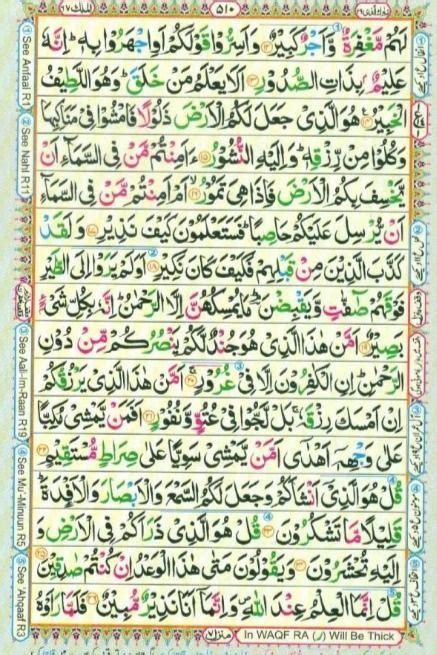 الملك ٦٧
٥١٠
تبٰرك الذی ٢٩
لَهُمْ مَّغْفِرَةٌ وَّاَجْرٌ كَبِيْرٌ ۝۱۲ وَاَسِرُّوْا قَوْلَكُمْ اَوِ اجْهَرُوْا بِهٖ ؕ اِنَّهٗ
عَلِيْمٌۢ بِذَاتِ الصُّدُوْرِ ۝۱۳ اَلَا يَعْلَمُ مَنْ خَلَقَ ؕ وَهُوَ اللَّطِيْفُ
الْخَبِيْرُ ۝۱۴ هُوَ الَّذِيْ جَعَلَ لَكُمُ الْاَرْضَ ذَلُوْلًا فَامْشُوْا فِيْ مَنَاكِبِهَا
وَكُلُوْا مِنْ رِّزْقِهٖ ؕ وَاِلَيْهِ النُّشُوْرُ ۝۱۵ ءَاَمِنْتُمْ مَّنْ فِي السَّمَآءِ اَنْ
يَّخْسِفَ بِكُمُ الْاَرْضَ فَاِذَا هِيَ تَمُوْرُ ۝۱۶ اَمْ اَمِنْتُمْ مَّنْ فِي السَّمَآءِ
اَنْ يُّرْسِلَ عَلَيْكُمْ حَاصِبًا ؕ فَسَتَعْلَمُوْنَ كَيْفَ نَذِيْرِ ۝۱۷ وَلَقَدْ
كَذَّبَ الَّذِيْنَ مِنْ قَبْلِهِمْ فَكَيْفَ كَانَ نَكِيْرِ ۝۱۸ اَوَلَمْ يَرَوْا اِلَى الطَّيْرِ
فَوْقَهُمْ صٰٓفّٰتٍ وَّيَقْبِضْنَ ؔۘ مَا يُمْسِكُهُنَّ اِلَّا الرَّحْمٰنُ ؕ اِنَّهٗ بِكُلِّ شَيْءٍۭ
بَصِيْرٌ ۝۱۹ اَمَّنْ هٰذَا الَّذِيْ هُوَ جُنْدٌ لَّكُمْ يَنْصُرُكُمْ مِّنْ دُوْنِ
الرَّحْمٰنِ ؕ اِنِ الْكٰفِرُوْنَ اِلَّا فِيْ غُرُوْرٍ ۝۲۰ اَمَّنْ هٰذَا الَّذِيْ يَرْزُقُكُمْ
اِنْ اَمْسَكَ رِزْقَهٗ ۚ بَلْ لَّجُّوْا فِيْ عُتُوٍّ وَّنُفُوْرٍ ۝۲۱ اَفَمَنْ يَّمْشِيْ مُكِبًّا
عَلٰى وَجْهِهٖٓ اَهْدٰٓى اَمَّنْ يَّمْشِيْ سَوِيًّا عَلٰى صِرَاطٍ مُّسْتَقِيْمٍ ۝۲۲
قُلْ هُوَ الَّذِيْٓ اَنْشَاَكُمْ وَجَعَلَ لَكُمُ السَّمْعَ وَالْاَبْصَارَ وَالْاَفْـِٕدَةَ ؕ
قَلِيْلًا مَّا تَشْكُرُوْنَ ۝۲۳ قُلْ هُوَ الَّذِيْ ذَرَاَكُمْ فِي الْاَرْضِ وَ
اِلَيْهِ تُحْشَرُوْنَ ۝۲۴ وَيَقُوْلُوْنَ مَتٰى هٰذَا الْوَعْدُ اِنْ كُنْتُمْ صٰدِقِيْنَ ۝۲۵
قُلْ اِنَّمَا الْعِلْمُ عِنْدَ اللّٰهِ ۪ وَاِنَّمَآ اَنَا نَذِيْرٌ مُّبِيْنٌ ۝۲۶ فَلَمَّا رَاَوْهُ
① See Anfaal R1
② See Nahl R11
③ See Aal-Im-Raan R19
④ See Mu'-Minuun R5
⑤ See 'Ahqaaf R3
منزل ٧
In WAQF RA (ر) Will Be Thick